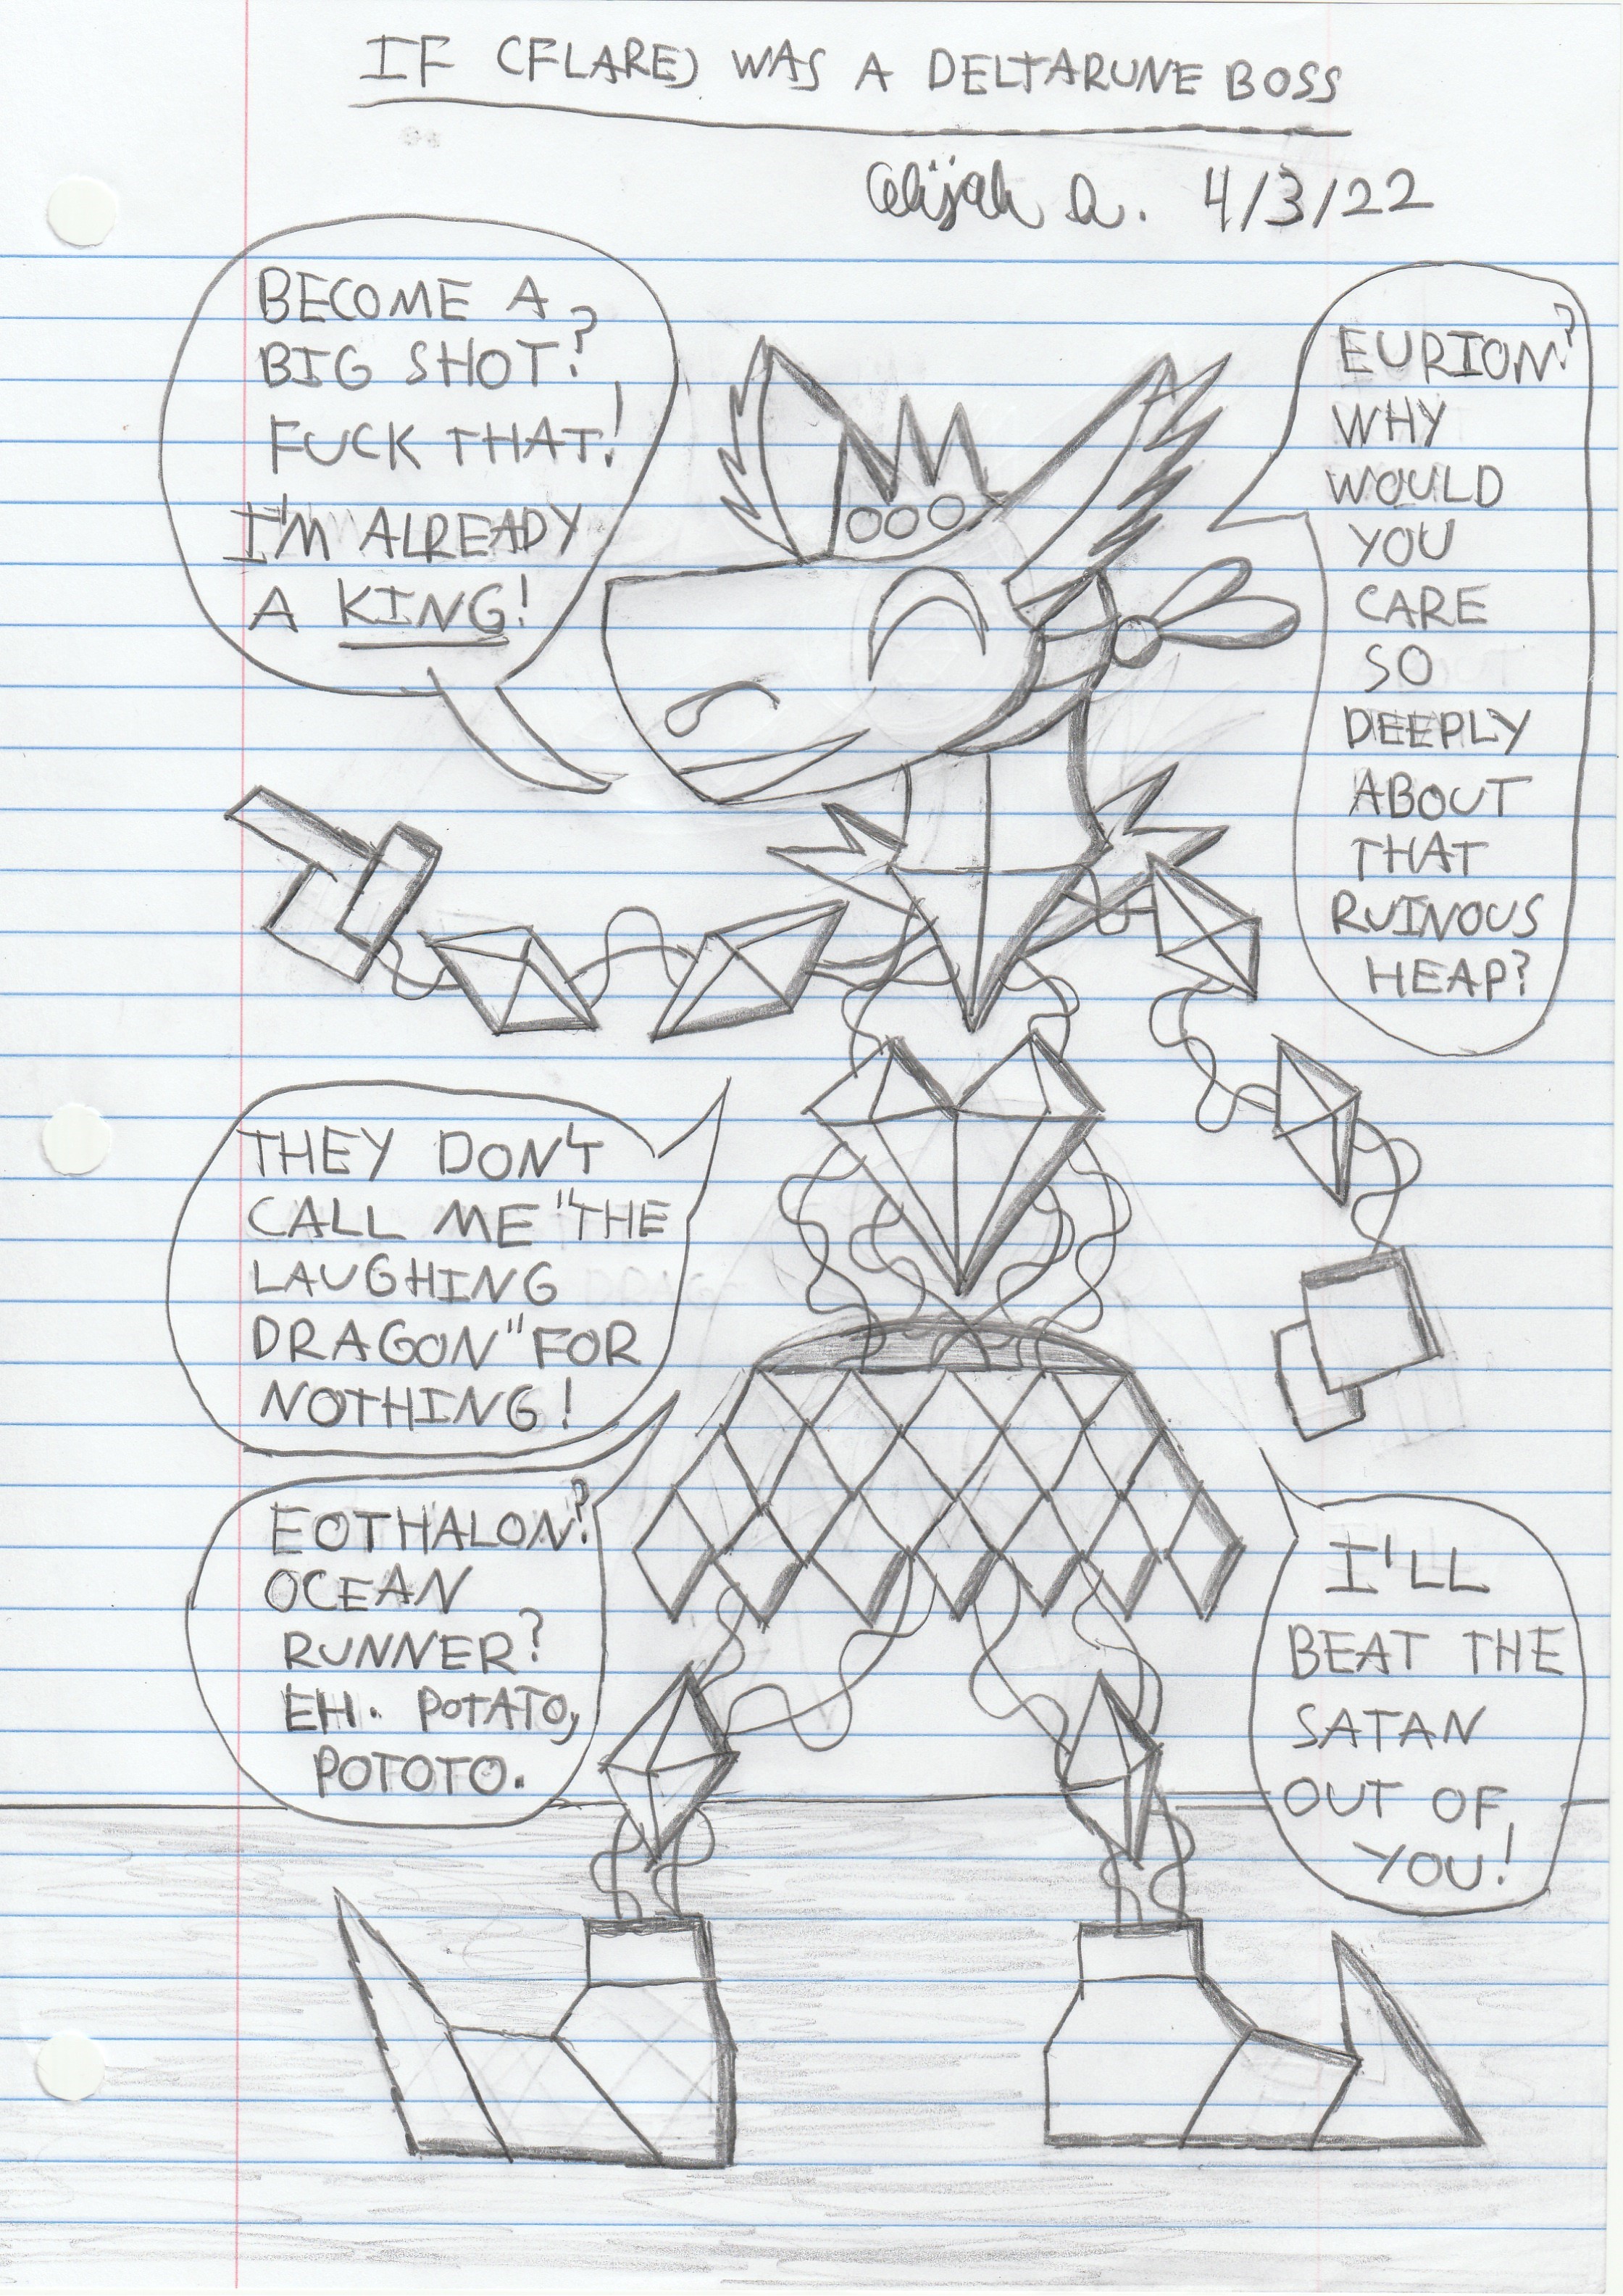 IF (FLARE) WAS A DELTARUNE BOSS
Elijah A. 4/3/22
BECOME A
BIG SHOT?
FUCK THAT!
I'M ALREADY
A KING!
EURION?
WHY
WOULD
YOU
CARE
SO
DEEPLY
ABOUT
THAT
RUINOUS
HEAP?
THEY DON'T
CALL ME "THE
LAUGHING
DRAGON" FOR
NOTHING!
EOTHALON?
OCEAN
RUNNER?
EH. POTATO,
POTOTO.
I'LL
BEAT THE
SATAN
OUT OF
YOU!